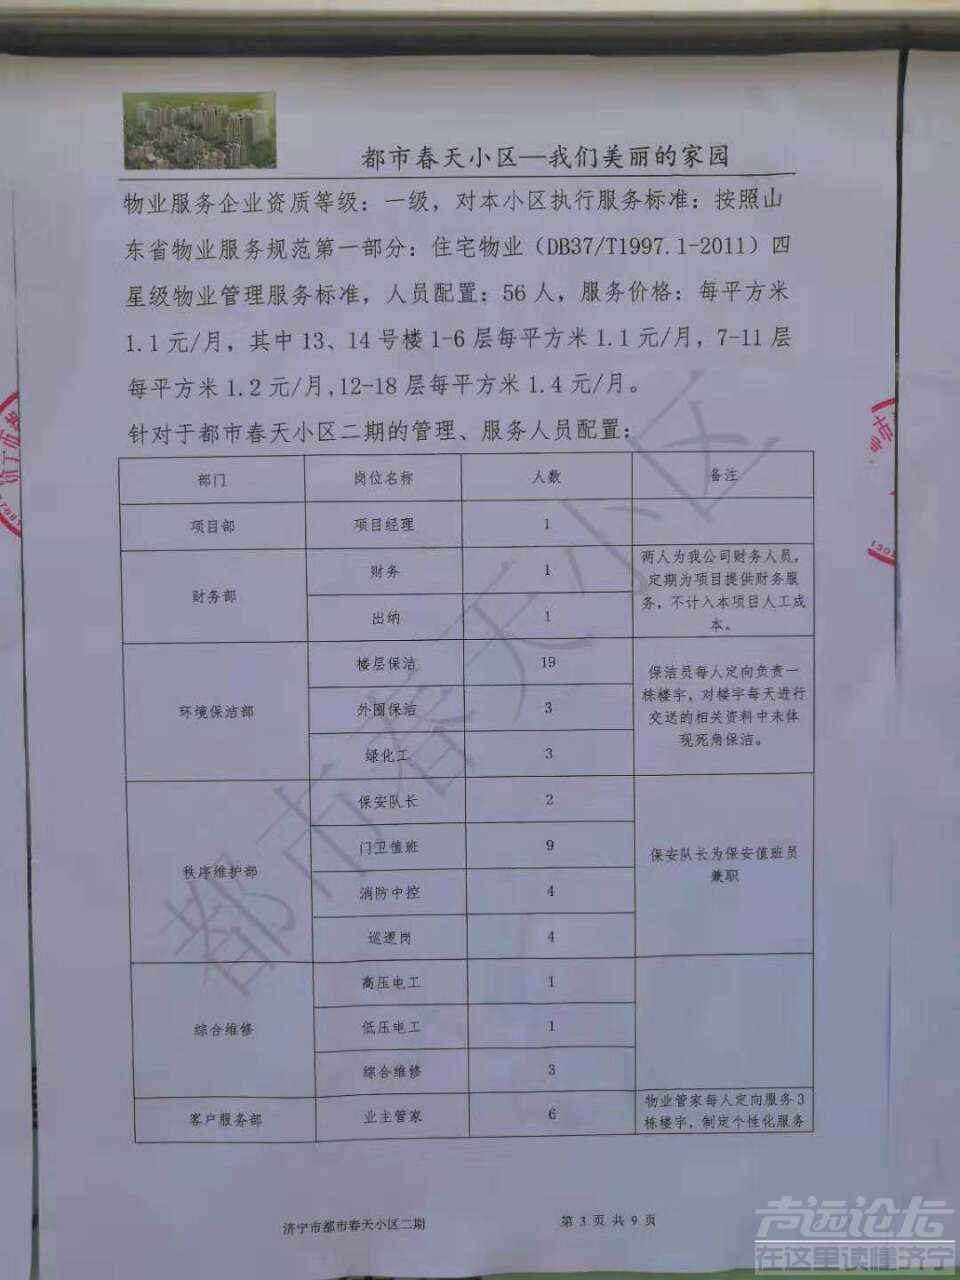 都市春天小区—我们美丽的家园
物业服务企业资质等级：一级，对本小区执行服务标准：按照山
东省物业服务规范第一部分：住宅物业（DB37/T1997.1-2011）四
星级物业管理服务标准，人员配置：56人，服务价格：每平方米
1.1元/月，其中13、14号楼1-6层每平方米1.1元/月，7-11层
每平方米1.2元/月,12-18层每平方米1.4元/月。
针对于都市春天小区二期的管理、服务人员配置：
部门 岗位名称 人数 备注
项目部 项目经理 1
财务部
财务 1
出纳 1
两人为我公司财务人员，
定期为项目提供财务服
务，不计入本项目人工成
本。
环境保洁部
楼层保洁 19
外围保洁 3
绿化工 3
保洁员每人定向负责一
栋楼宇，对楼宇每天进行
交送的相关资料中未体
现死角保洁。
秩序维护部
保安队长 2
门卫值班 9
消防中控 4
巡逻岗 4
保安队长为保安值班员
兼职
综合维修
高压电工 1
低压电工 1
综合维修 3
客户服务部 业主管家 6
物业管家每人定向服务3
栋楼宇，制定个性化服务
都市春天小区
济宁市都市春天小区二期
第 3 页 共 9 页
声远论坛
在这里读懂济宁